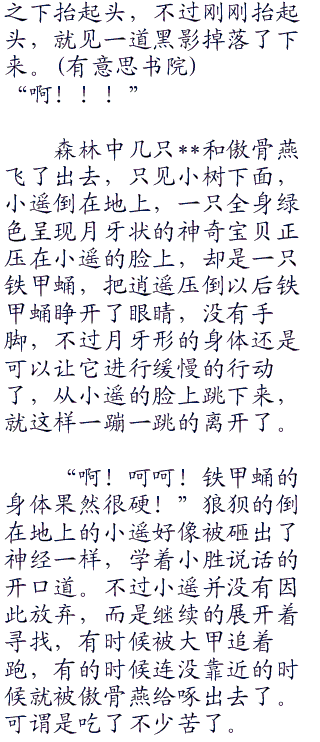 之下抬起头，不过刚刚抬起
头，就见一道黑影掉落了下
来。(有意思书院)
“啊！！！”
森林中几只**和傲骨燕
飞了出去，只见小树下面，
小遥倒在地上，一只全身绿
色呈现月牙状的神奇宝贝正
压在小遥的脸上，却是一只
铁甲蛹，把逍遥压倒以后铁
甲蛹睁开了眼睛，没有手
脚，不过月牙形的身体还是
可以让它进行缓慢的行动
了，从小遥的脸上跳下来，
就这样一蹦一跳的离开了。
“啊！呵呵！铁甲蛹的
身体果然很硬！”狼狈的倒
在地上的小遥好像被砸出了
神经一样，学着小胜说话的
开口道。不过小遥并没有因
此放弃，而是继续的展开着
寻找，有时候被大甲追着
跑，有的时候连没靠近的时
候就被傲骨燕给啄出去了。
可谓是吃了不少苦了。